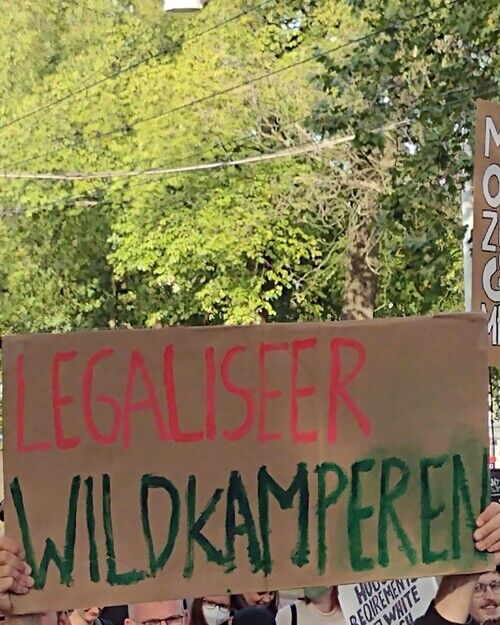 LEGALISEER
WILDKAMPEREN
REQIREMENTS
WHITE